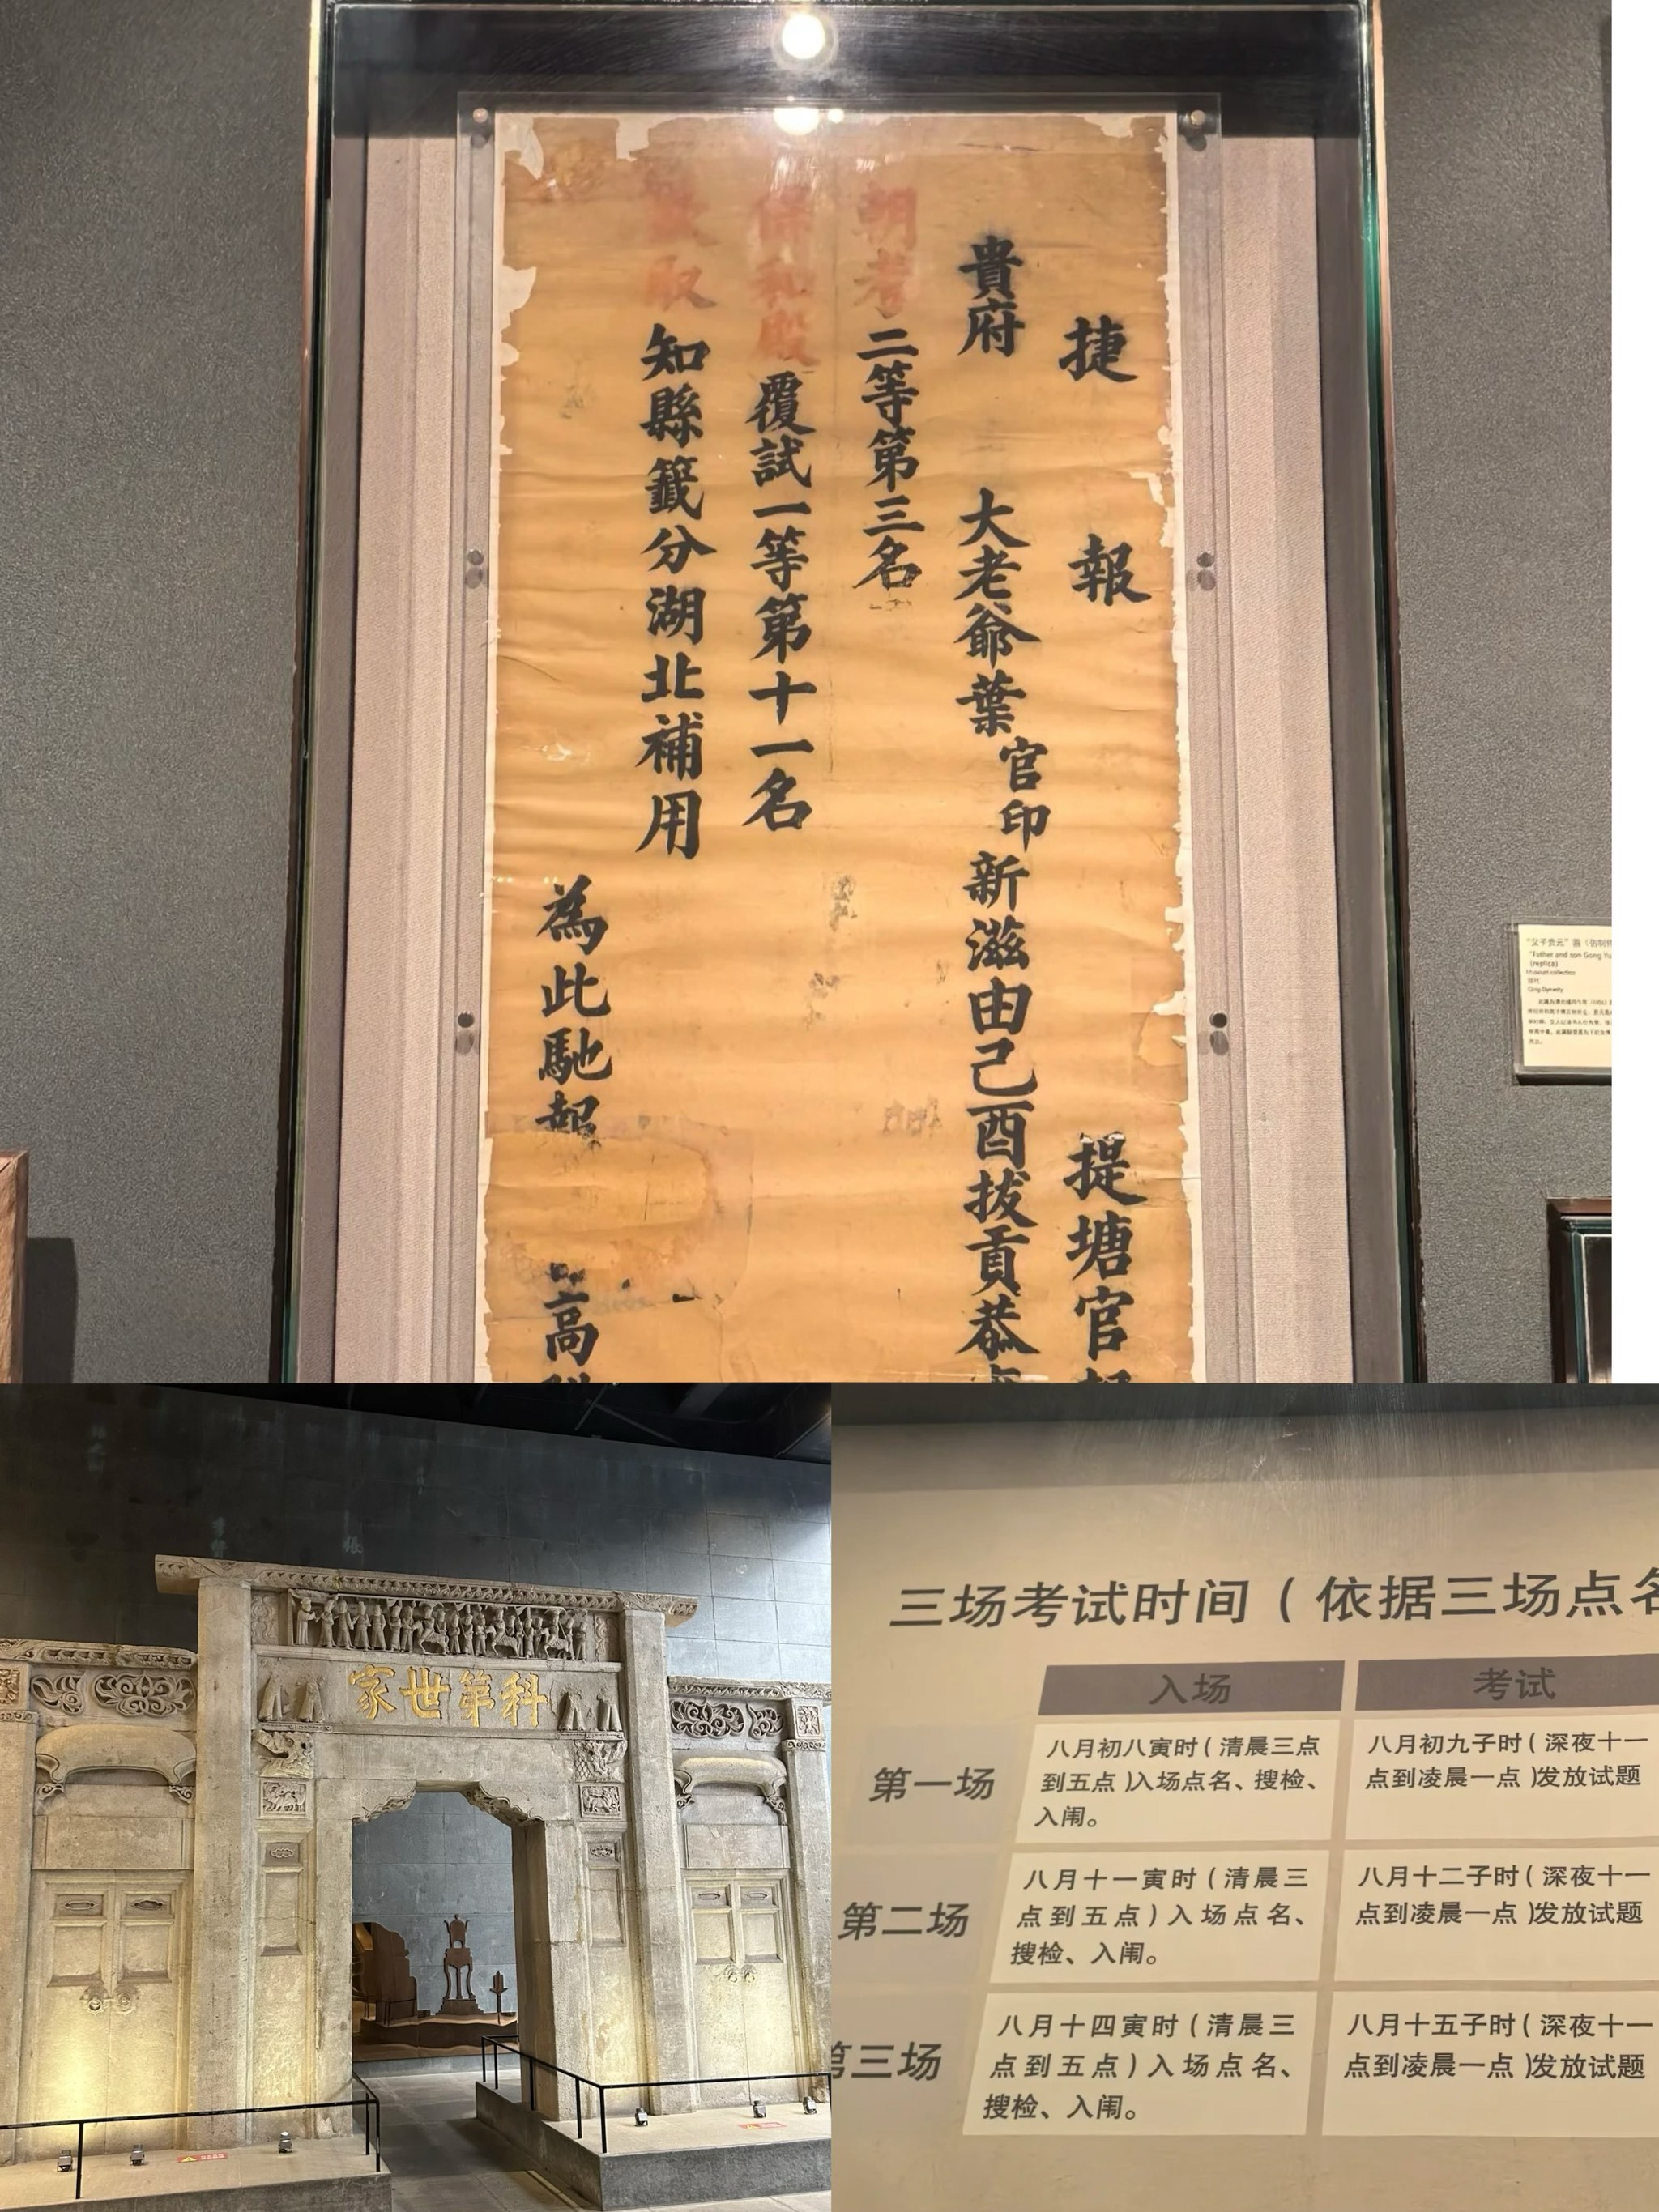 捷報 提塘官
貴府 大老爺葉官印新滋由己酉拔貢恭
朝考二等第三名
保和殿覆試一等第十一名
取知縣籤分湖北補用
為此馳報 高
"父子贡元"匾
"Father and son Gong Yu
(replica)
Museum collection
Qing Dynasty
科第世家
三场考试时间(依据三场点名
入场 考试
第一场
八月初八寅时(清晨三点
到五点)入场点名、搜检、
入闱。
八月初九子时(深夜十一
点到凌晨一点)发放试题
第二场
八月十一寅时(清晨三
点到五点)入场点名、
搜检、入闱。
八月十二子时(深夜十一
点到凌晨一点)发放试题
第三场
八月十四寅时(清晨三
点到五点)入场点名、
搜检、入闱。
八月十五子时(深夜十一
点到凌晨一点)发放试题